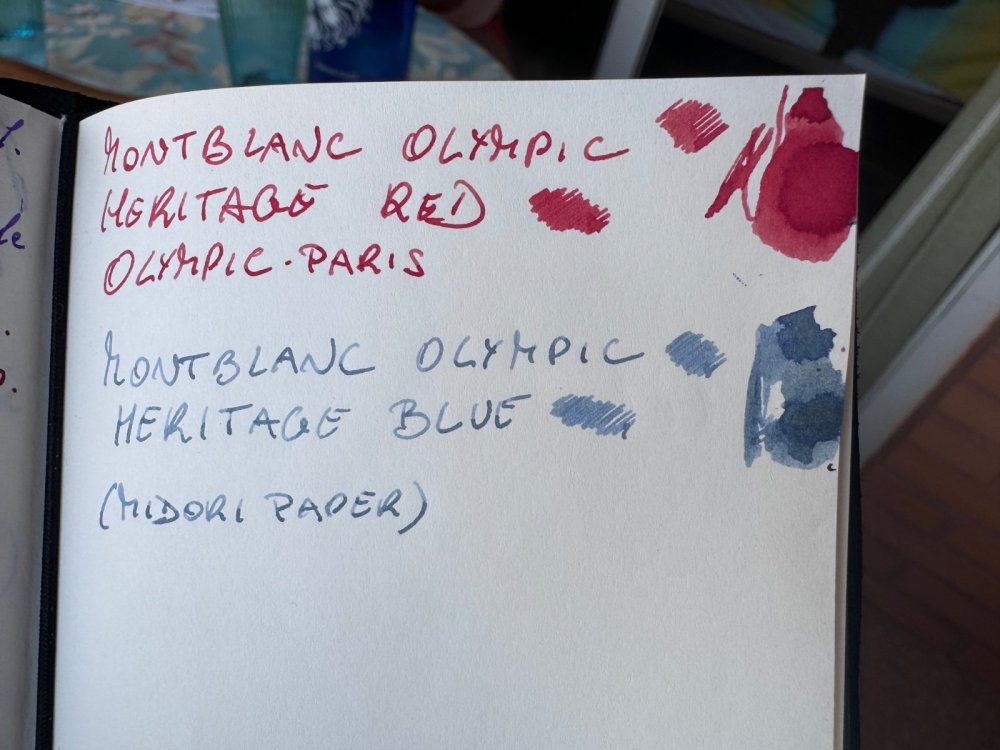 MONTBLANC OLYMPIC
HERITAGE RED
OLYMPIC·PARIS
MONTBLANC OLYMPIC
HERITAGE BLUE
(MIDORI PAPER)